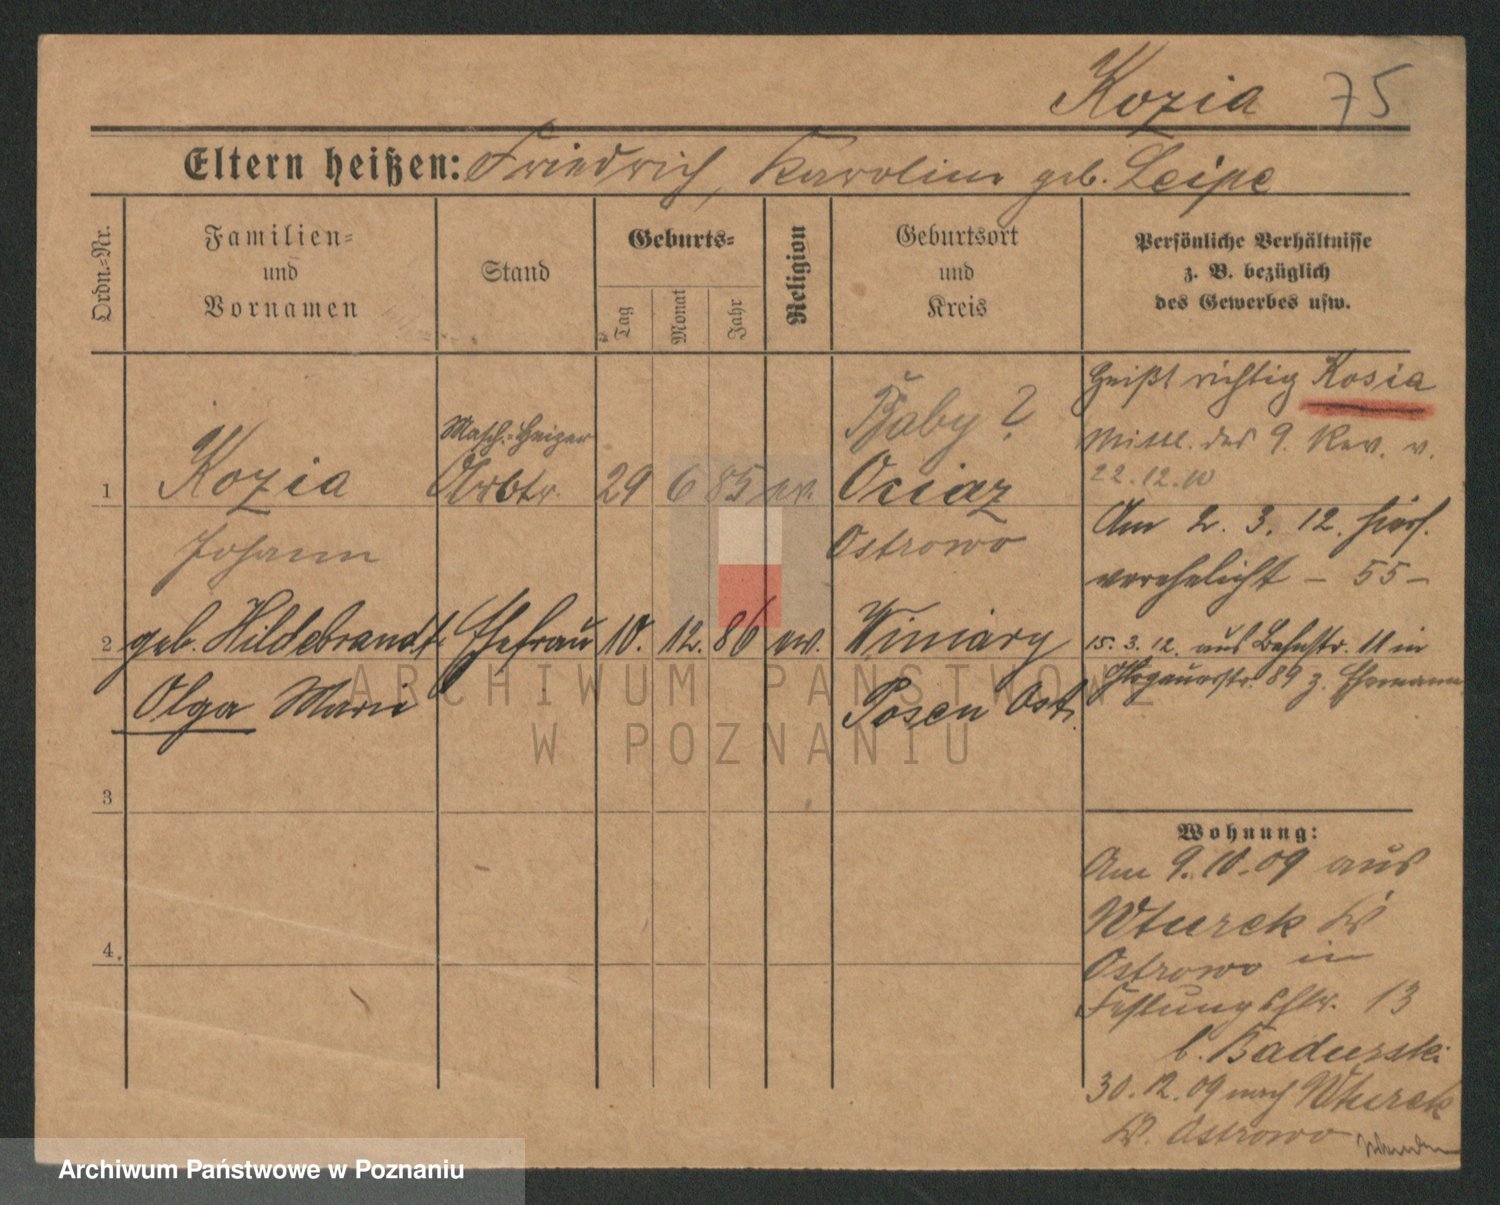 Kozia 75
Eltern heißen: Friedrich, Karoline geb. Leipe
Ordn.-Nr.
Familien-
und
Vornamen
Stand
Geburts-
Tag
Monat
Jahr
Religion
Geburtsort
und
Kreis
Persönliche Verhältnisse
z. B. bezüglich
des Gewerbes usw.
1
Kozia
Johann
Masch.-Heizer
Arbtr.
29 6 85 ev.
Baby ?
Ociaz
Ostrowo
heißt richtig Kosia
Mittl. des 9. Rev. v.
22.12.10
Am 2. 3. 12. hiers.
verehelicht - 55 -
2
geb. Hildebrandt
Olga Marie
Ehefrau
10. 12. 86 ev.
Winiary
Posen Ost.
15. 3. 12. aus Bahnstr. 11 in
Glogauerstr. 89 z. Ehemann
3
4.
Wohnung:
Am 9.10.09 aus
Wturek Kr
Ostrowo in
Festungsstr. 13
b. Badurski
30.12.09 nach Wturek
Kr. Ostrowo
ARCHIWUM PAŃSTWOWE
W POZNANIU
Archiwum Państwowe w Poznaniu